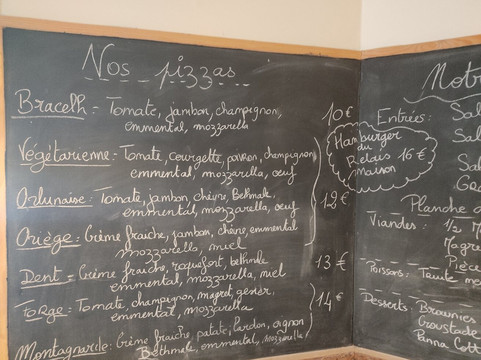 Nos pizzas
Bracelh : Tomate, jambon, champignon, 10€
emmental, mozzarella
Végétarienne : Tomate, courgette, poivron, champignon
emmental, mozzarella, oeuf
Orlunaise : Tomate, jambon, chèvre, Bethmale, 12€
emmental, mozzarella, oeuf
Ariège : Crème fraiche, jambon, chèvre, emmental
mozzarella, miel
Dent : Crème fraiche, roquefort, bethmale 13€
emmental, mozzarella, miel
Forge : Tomate, champignon, magret, gésier, 14€
emmental, mozzarella
Montagnarde : Crème fraiche, patate, lardon, oignon
Bethmale, emmental, mozzarella
Hamburger
du
Relais 16€
maison
Notr
Entrées : Sal
Sal
Sal
Planche
Viandes : 1/2 M
Magre
Pièce
Poissons : Truite me
Desserts : Brownies
Croustade
Panna Cott